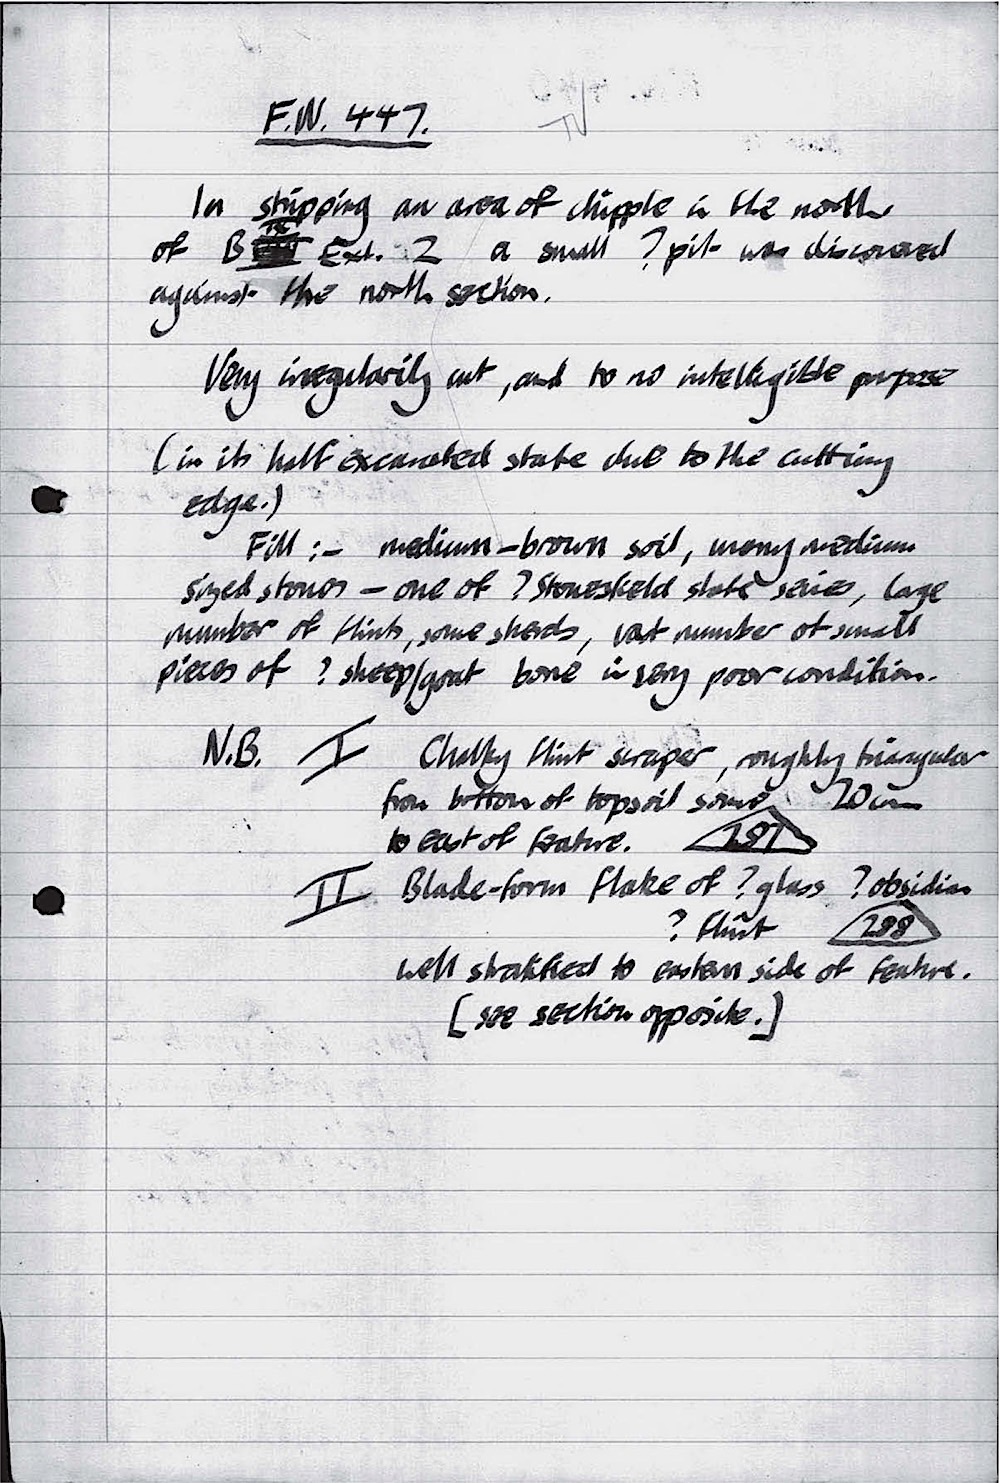 F.W. 447.
In stripping an area of chipple in the north
of B III Ext. 2 a small ? pit was discovered
against the north section.
Very irregularily cut, and to no intelligible purpose
(in its half excavated state due to the cutting
edge.)
Fill :- medium-brown soil, many medium
sized stones - one of ? Stonesfield slate series, large
number of flints, some sherds, vast number of small
pieces of ? sheep/goat bone in very poor condition.
N.B. I Chalky flint scraper, roughly triangular
from bottom of topsoil some 20cm
to east of feature. 287
II Blade-form flake of ? glass ? obsidian
? flint 288
well stratified to eastern side of feature.
[see section opposite.]